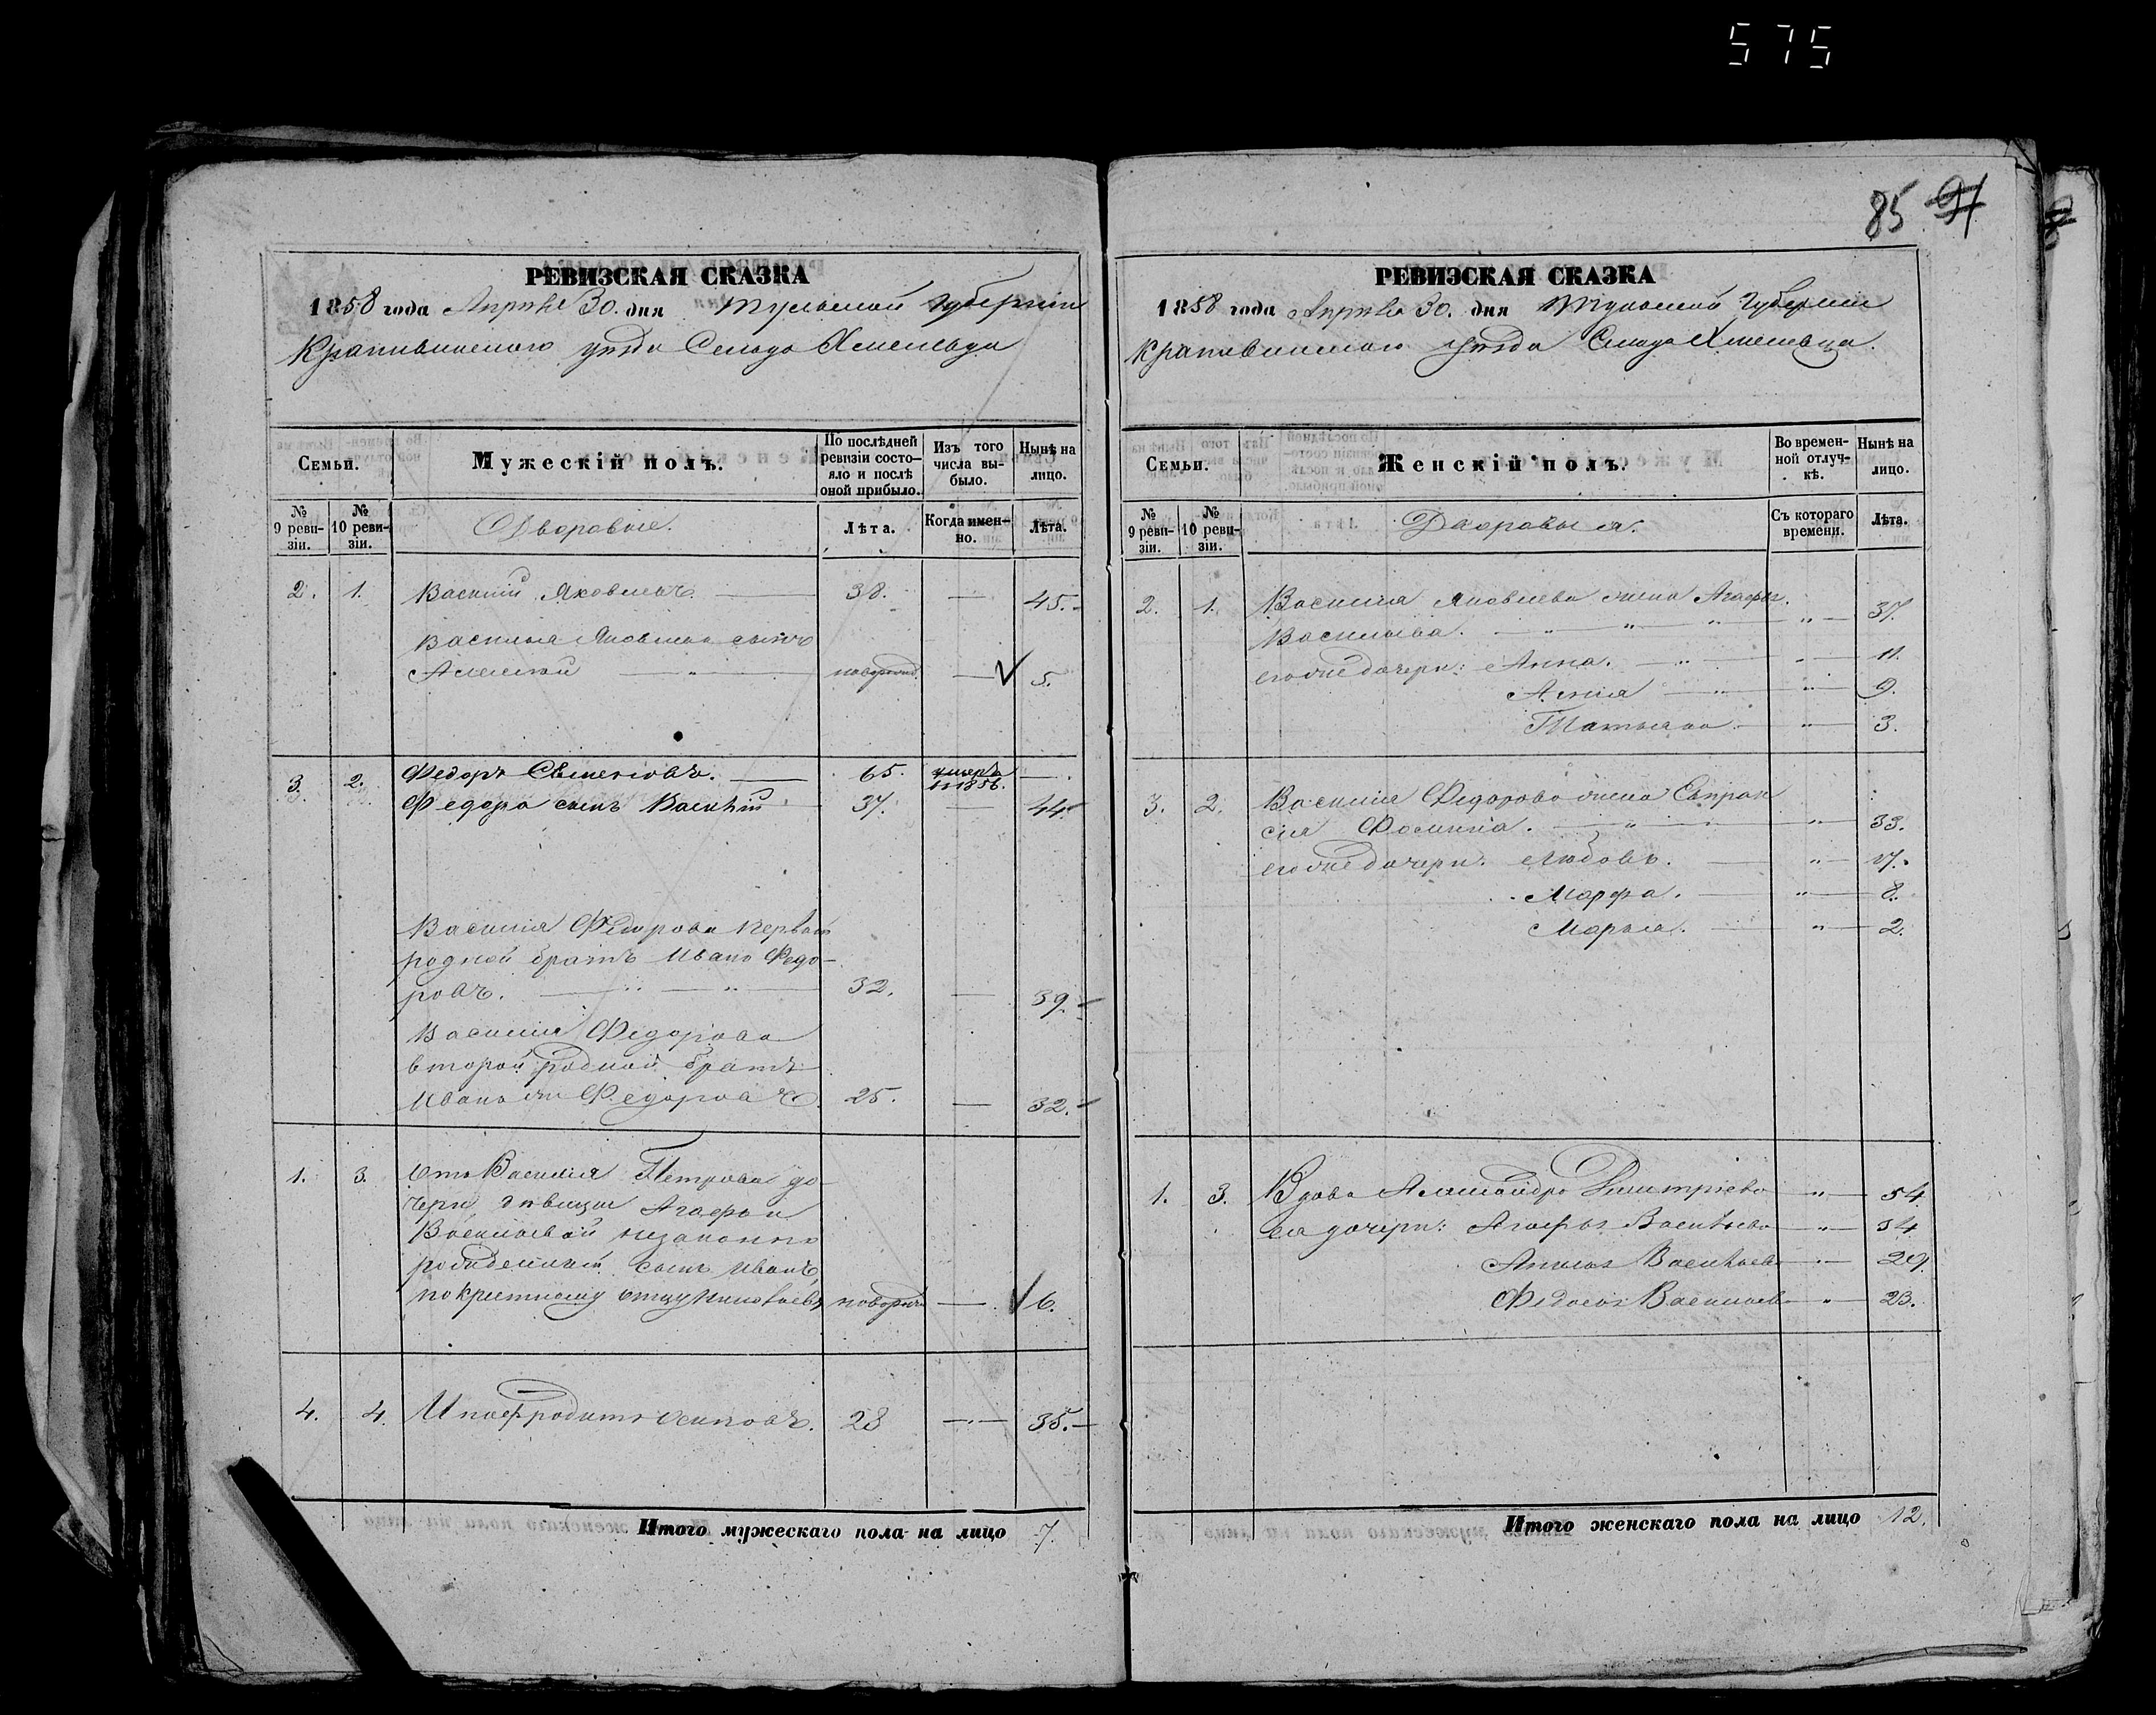 575
85 91
РЕВИЗСКАЯ СКАЗКА
1858 года Апреля 30. дня Тульской Губернии
Крапивинского уезда Сельца Хмелевца
Семьи.
Мужескій полъ.
По послѣдней ревизіи состояло и послѣ оной прибыло.
Изъ того числа выбыло.
Нынѣ на лицо.
№ 9 ревизіи.
№ 10 ревизіи.
Дворовые.
Лѣта.
Когда именно.
Лѣта.
2. 1. Василий Яковлевъ. 38. — 45.
Василья Яковлева сынъ
Алексей новорожд. — 5.
3. 2. Федоръ Семеновъ. 65. умеръ в 1856. —
Федора сынъ Василій 37. — 44.
Василія Федорова первый
родной братъ Иванъ Федо-
ровъ. 32. — 39.
Василія Федорова
второй родной братъ
Иванъ же Федоровъ. 25. — 32.
1. 3. Отъ Василія Петрова до
чери девицы Агафьи
Васильевой незаконно
рожденный сынъ Иванъ,
по крестному отцу Николаевъ новорож. — 6.
4. 4. Ипафродитъ Осиповъ. 28 — 35.
Итого мужескаго пола на лицо 7.
РЕВИЗСКАЯ СКАЗКА
1858 года Апреля 30. дня Тульской Губернии
Крапивинского уезда Сельца Хмелевца.
Семьи.
Женскій полъ.
Во временной отлучкѣ.
Нынѣ на лицо.
№ 9 ревизіи.
№ 10 ревизіи.
Дворовыя.
Съ котораго времени.
Лѣта.
2. 1. Василія Яковлева жена Агафья
Васильева. 37.
его же дочери: Анна. 11.
Аксинья 9.
Татьяна. 3.
3. 2. Василія Федорова жена Евпрак
сия Фомина. 33.
его же дочери: Любовь. 17.
Марфа. 8.
Марья. 2.
1. 3. Вдова Александра Дмитриева 54
ея дочери: Агафья Васильева 34
Васильева 29.
Федосья Васильева 23.
Итого женскаго пола на лицо 12.